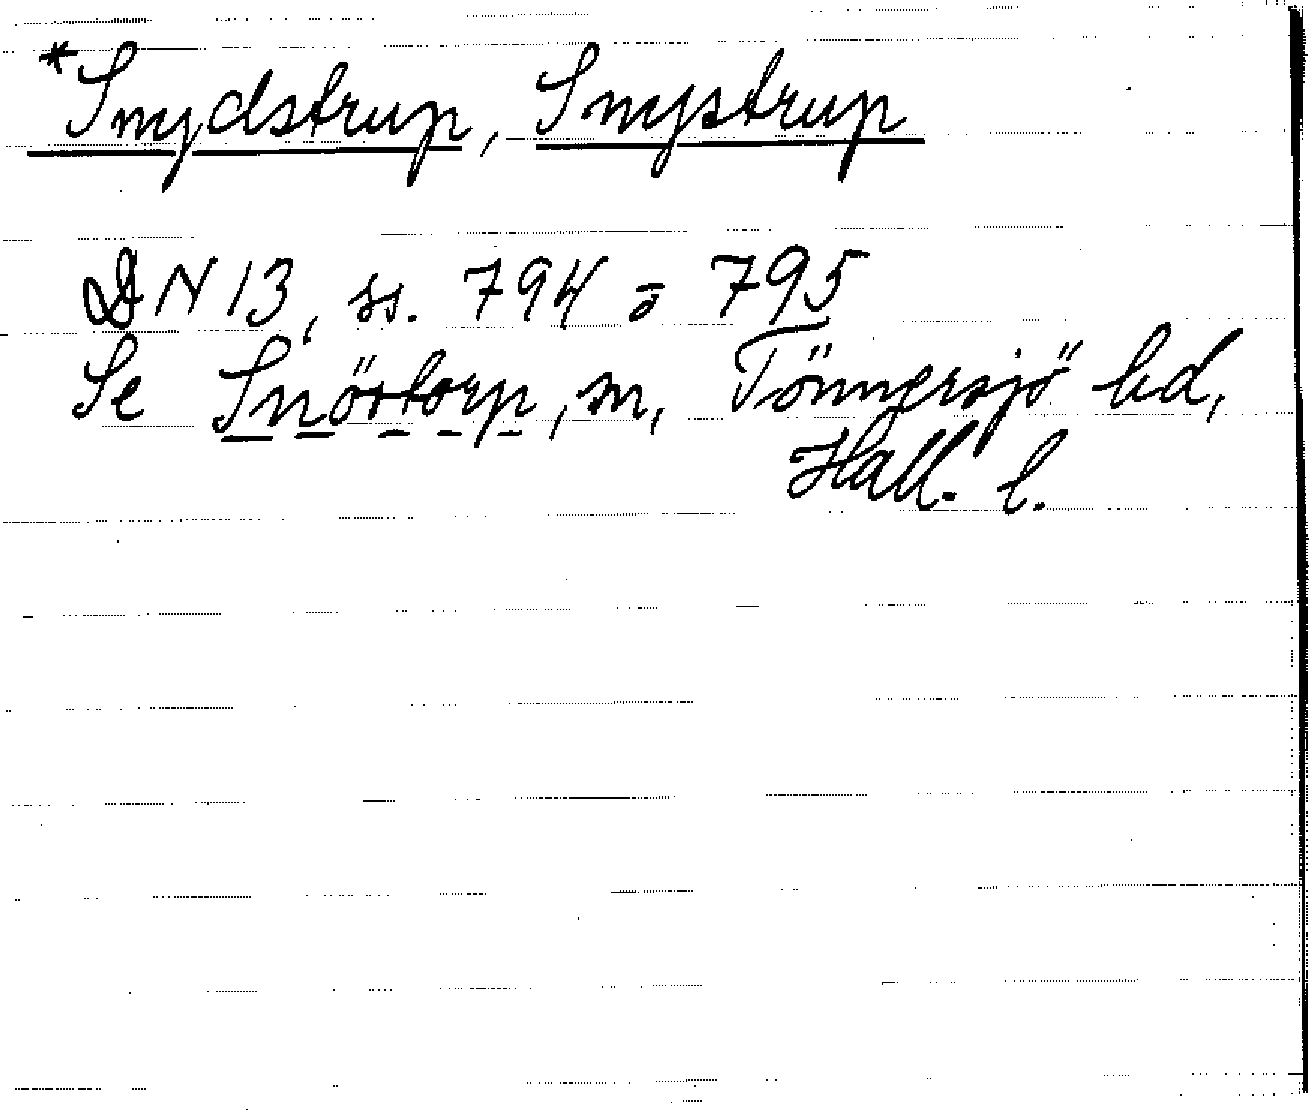 *Smydstrup, Smystrup
DN 13, ss. 794 o 795
Se Snöstorp, sn, Tönnersjö hd,
Hall. l.